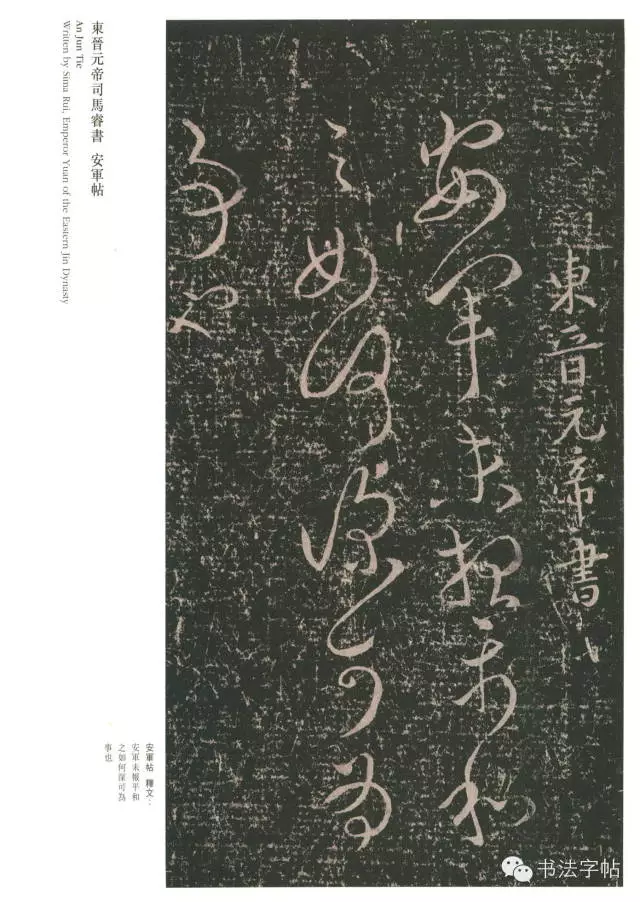 東晉元帝書
安軍未報平和
之如何深可為
事也
東晉元帝司馬睿書 安軍帖
An Jun Tie
Written by Sima Rui, Emperor Yuan of the Eastern Jin Dynasty
安軍帖 釋文：
安軍未報平和
之如何深可為
事也
书法字帖